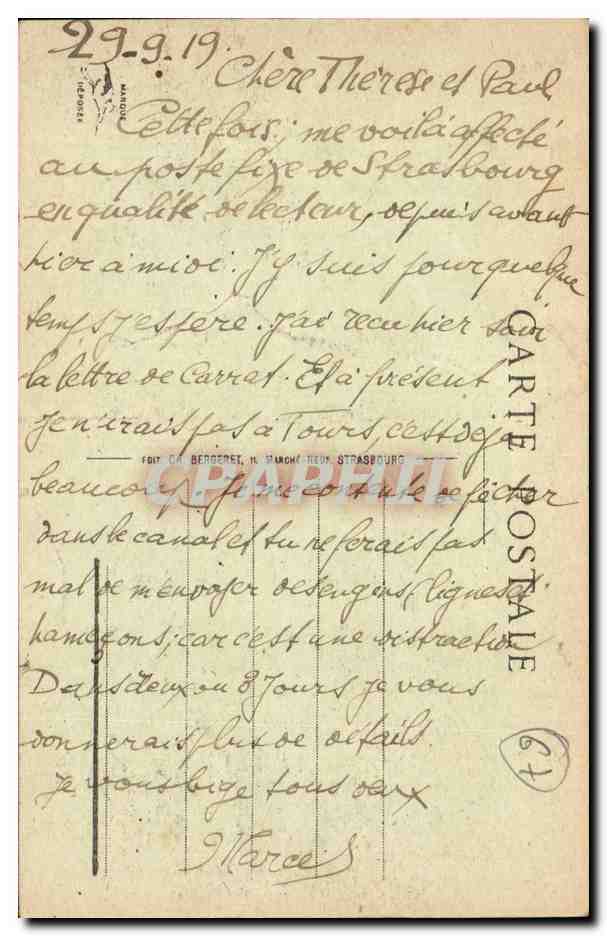 29-9-19.
MARQUE
DÉPOSÉE
Chère Thérèse et Paul
Cette fois; me voilà affecté
au poste fixe de Strasbourg
en qualité de lecteur, depuis avant
hier à midi. J'y suis pour quelque
temps j'espère. J'ai recu hier soir
la lettre de Carret. Et à présent
je n'irais pas à Tours, c'est déjà
EDIT. CH. BERGERET, MARCHÉ-NEUF, STRASBOURG
CPAPHIL
beaucoup. Je me contente de pêcher
dans le canal et tu referais pas
mal de m'envoyer des engins (lignes et
hameçons; car c'est une distraction
Dans deux ou 3 Jours je vous
donnerais plus de détails.
Je vous bige tous deux
Marcel
CARTE POSTALE
67